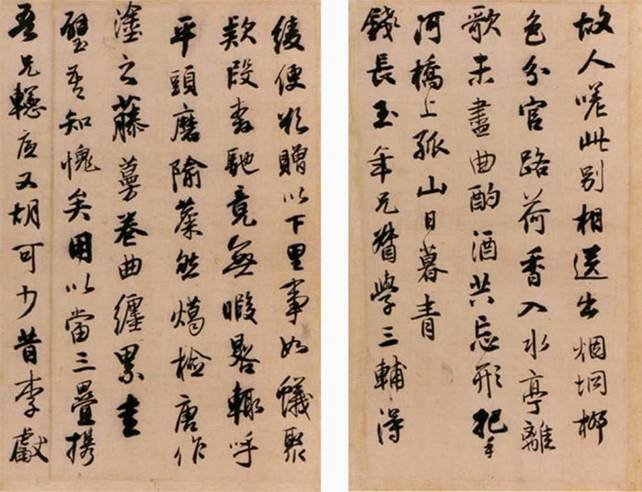 故人嗟此别相送出烟坰柳
色分官路荷香入水亭離
歌未盡曲酌酒共忘形把手
河橋上孤山日暮青
錢長玉年兄督學三輔得
綾便欲贈以下里事如蟻聚
款段奔馳竟無暇晷輒呼
平頭磨隃麋然燭檢唐作
塗之藤蔓卷曲纏累圭
璧吾知愧矣用以當三疊攜
吾兄轗度又胡可少昔李獻